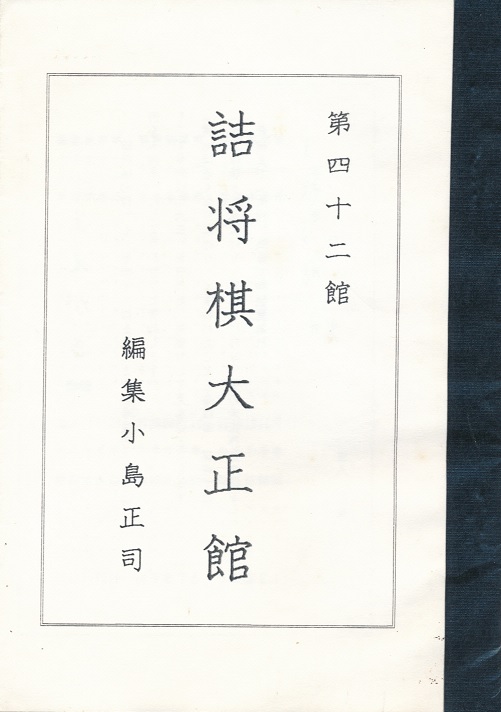 第四十二館
詰将棋大正館
編集小島正司